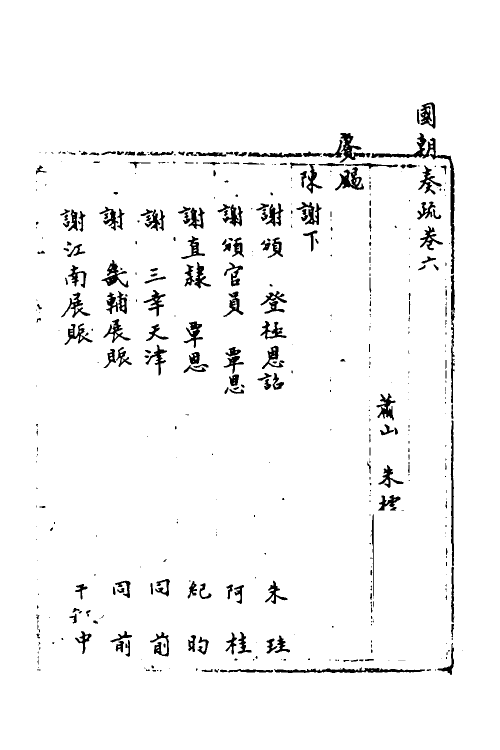 國朝奏疏卷六
蕭山 朱橒
賡颺
陳謝下
謝頒 登極恩詔 朱珪
謝頒官員 覃恩 阿桂
謝直隸 覃恩 紀昀
謝 三幸天津 同前
謝 畿輔展賑 同前
謝江南展賑 中